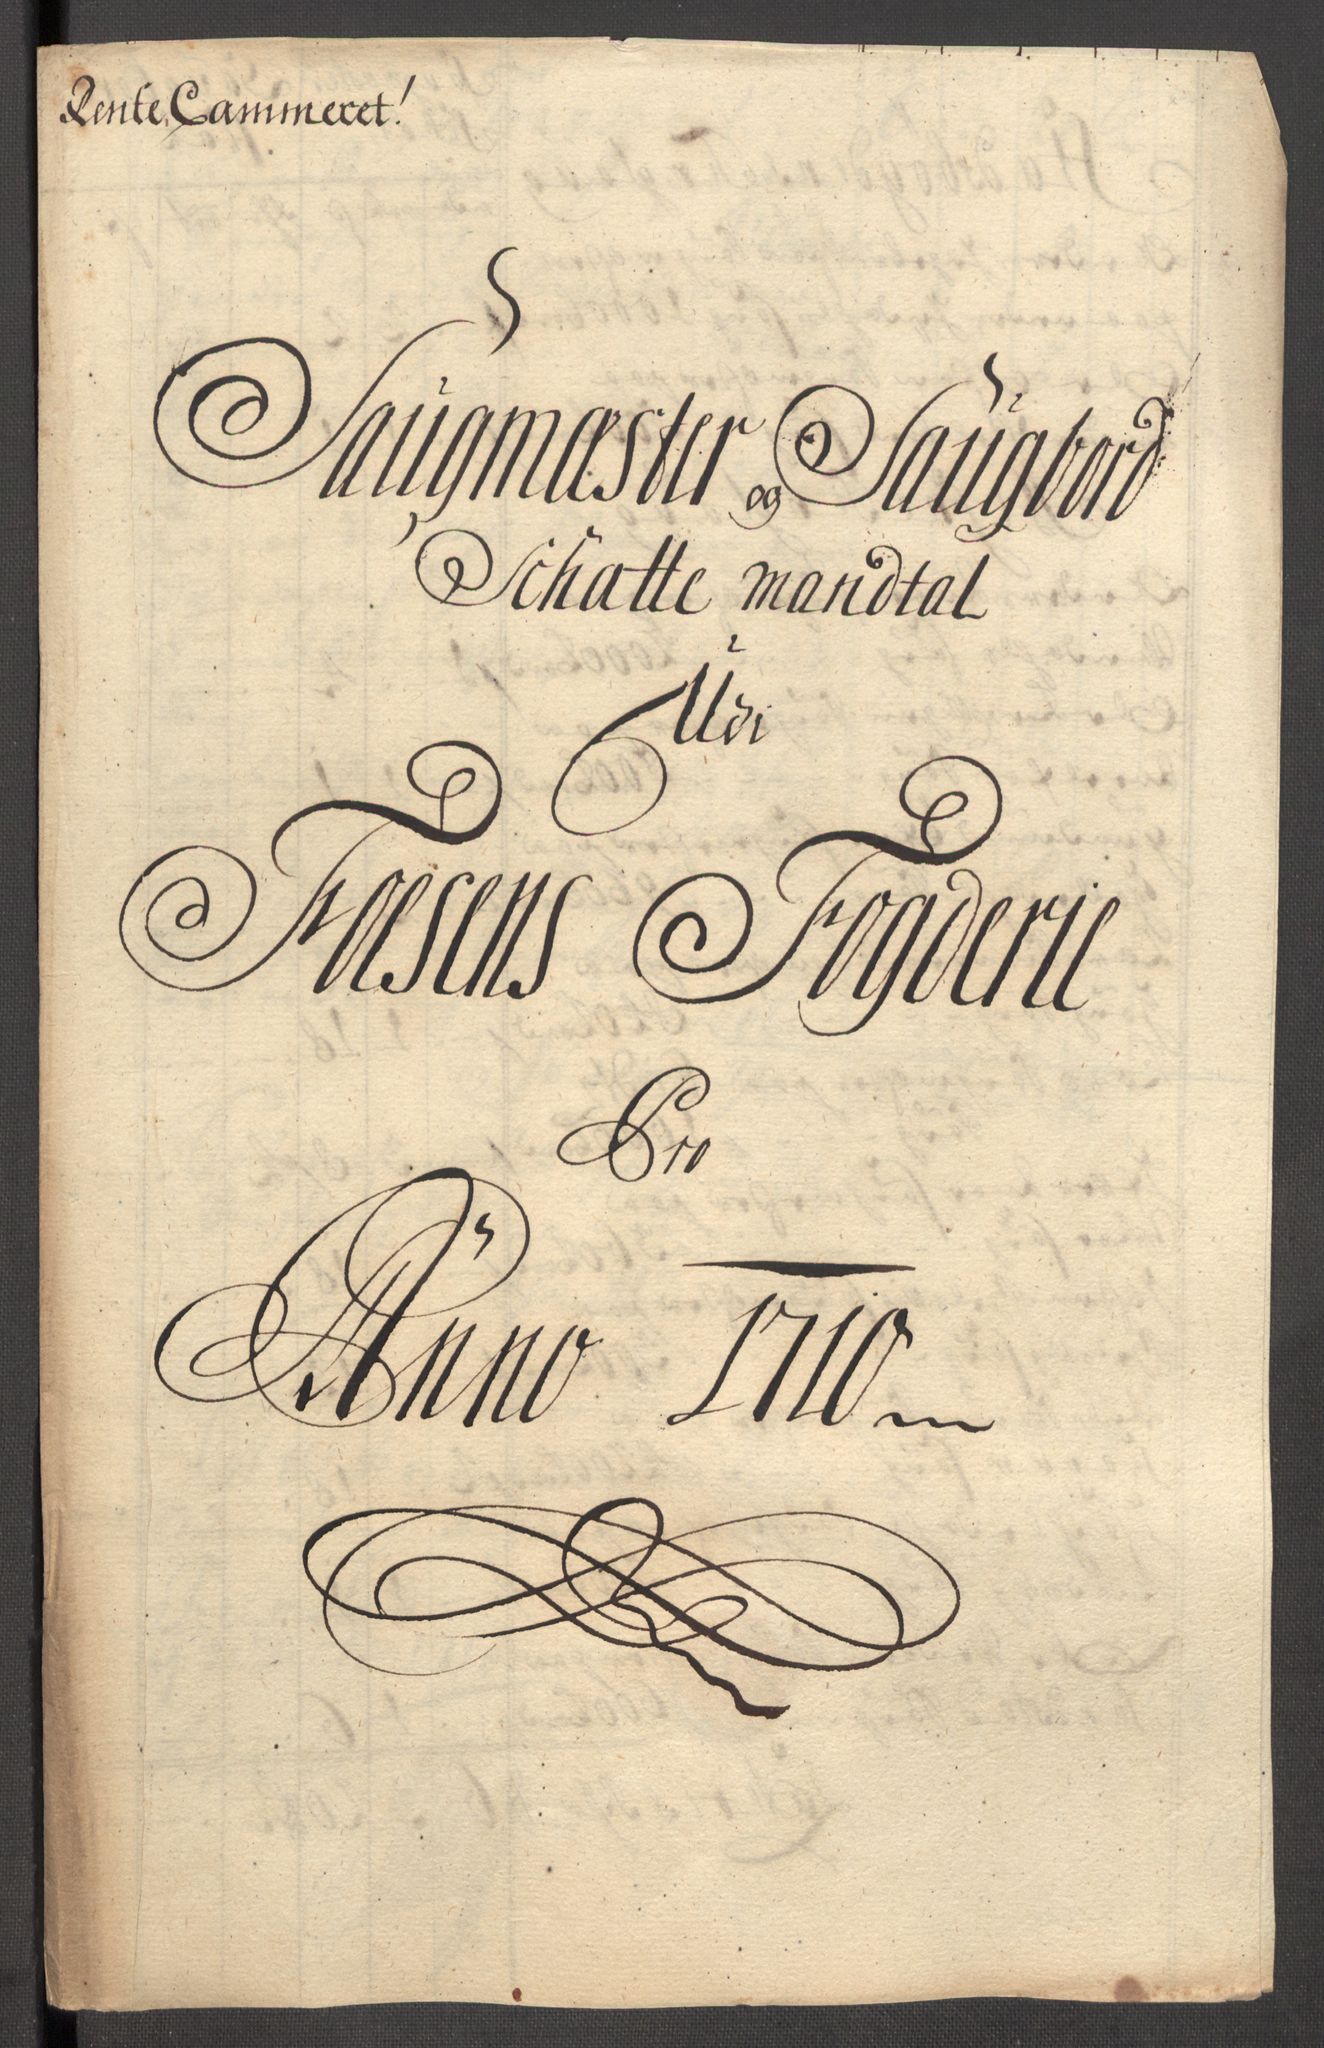 Rente Cammeret!
Saugmæster og Saugbord
Schatte mandtal
Udi
Foesens Fogderie
Pro
Anno 1710